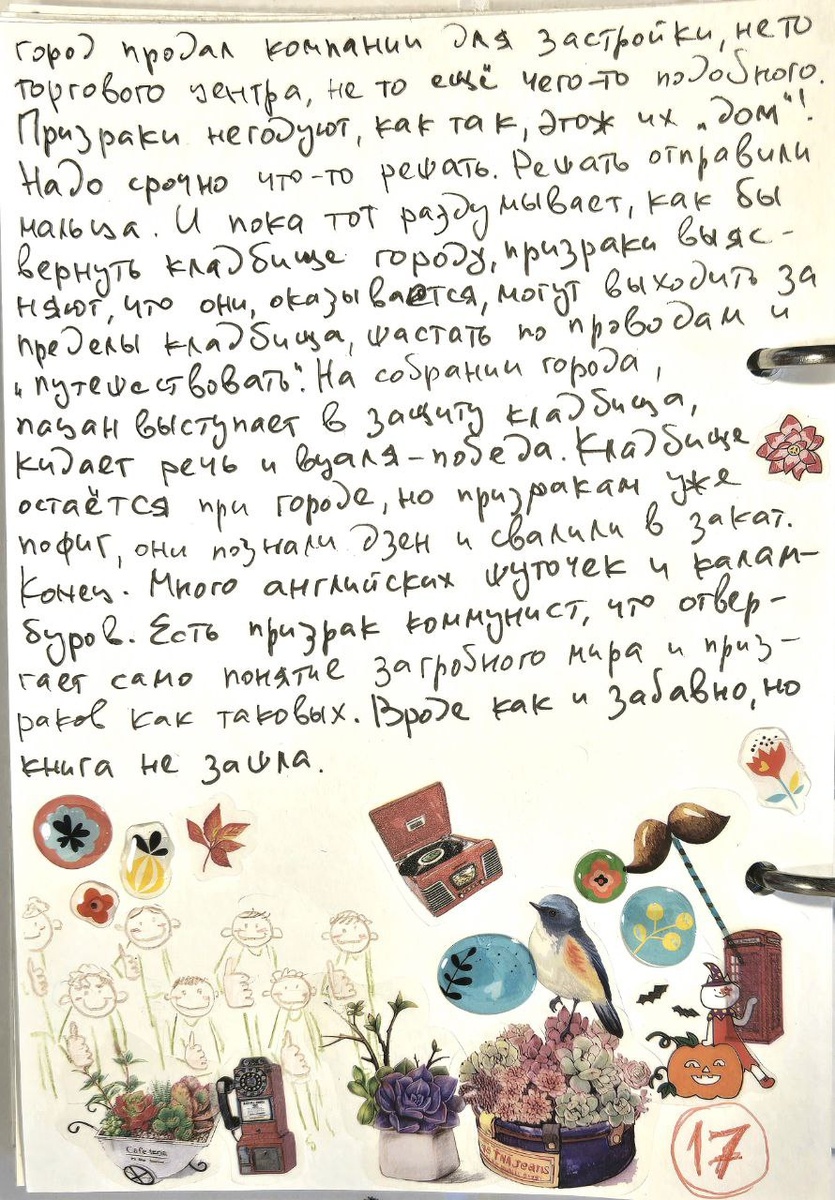 город продал компании для застройки, не то
торгового центра, не то ещё чего-то подобного.
Призраки негодуют, как так, этож их „дом"!
Надо срочно что-то решать. Решать отправили
мальца. И пока тот раздумывает, как бы
вернуть кладбище городу, призраки выяс-
няют, что они, оказывается, могут выходить за
пределы кладбища, шастать по проводам и
„путешествовать". На собрании города,
пацан выступает в защиту кладбища,
кидает речь и вуаля-победа. Кладбище
остаётся при городе, но призракам уже
пофиг, они познали дзен и свалили в закат.
Конец. Много английских шуточек и калам-
буров. Есть призрак коммунист, что отвер-
гает само понятие загробного мира и приз-
раков как таковых. Вроде как и забавно, но
книга не зашла.
TNA Jeans
17